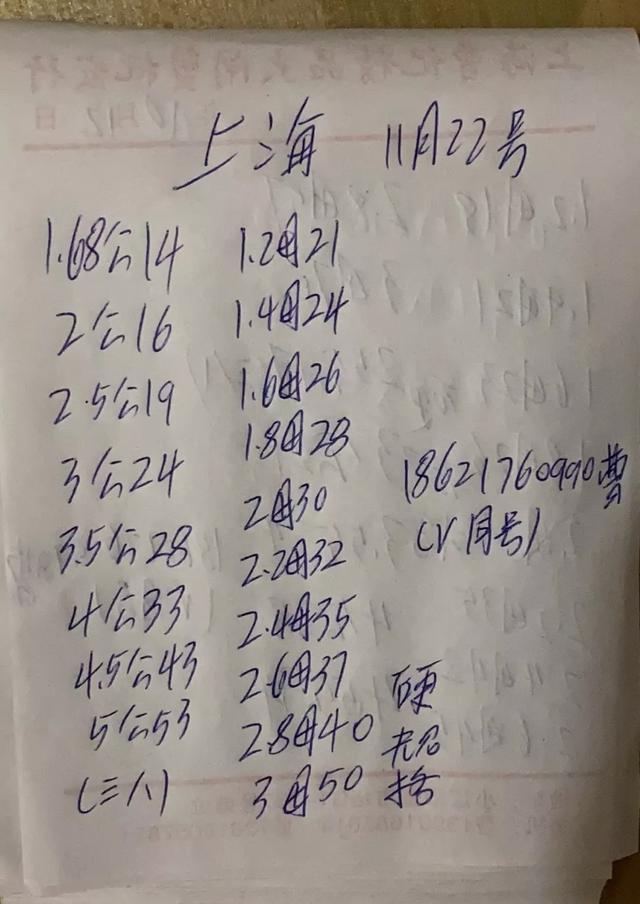 上海 11月22号
1.68公14 1.2母21
2公16 1.4母24
2.5公19 1.6母26
3公24 1.8母28
3.5公28 2母30
4公33 2.2母32
4.5公43 2.4母35
5公53 2.6母37
(三八) 2.8母40
3母50
18621760990曹
(V同号)
硬
规
格